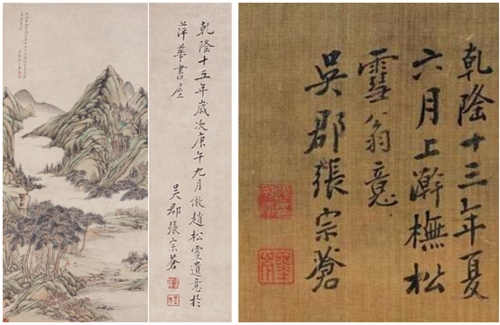 乾隆十五年歲次庚午九月倣趙松雪遺意於
萍華書屋
吳郡張宗蒼
乾隆十三年夏
六月上澣橅松
雪翁意
吳郡張宗蒼